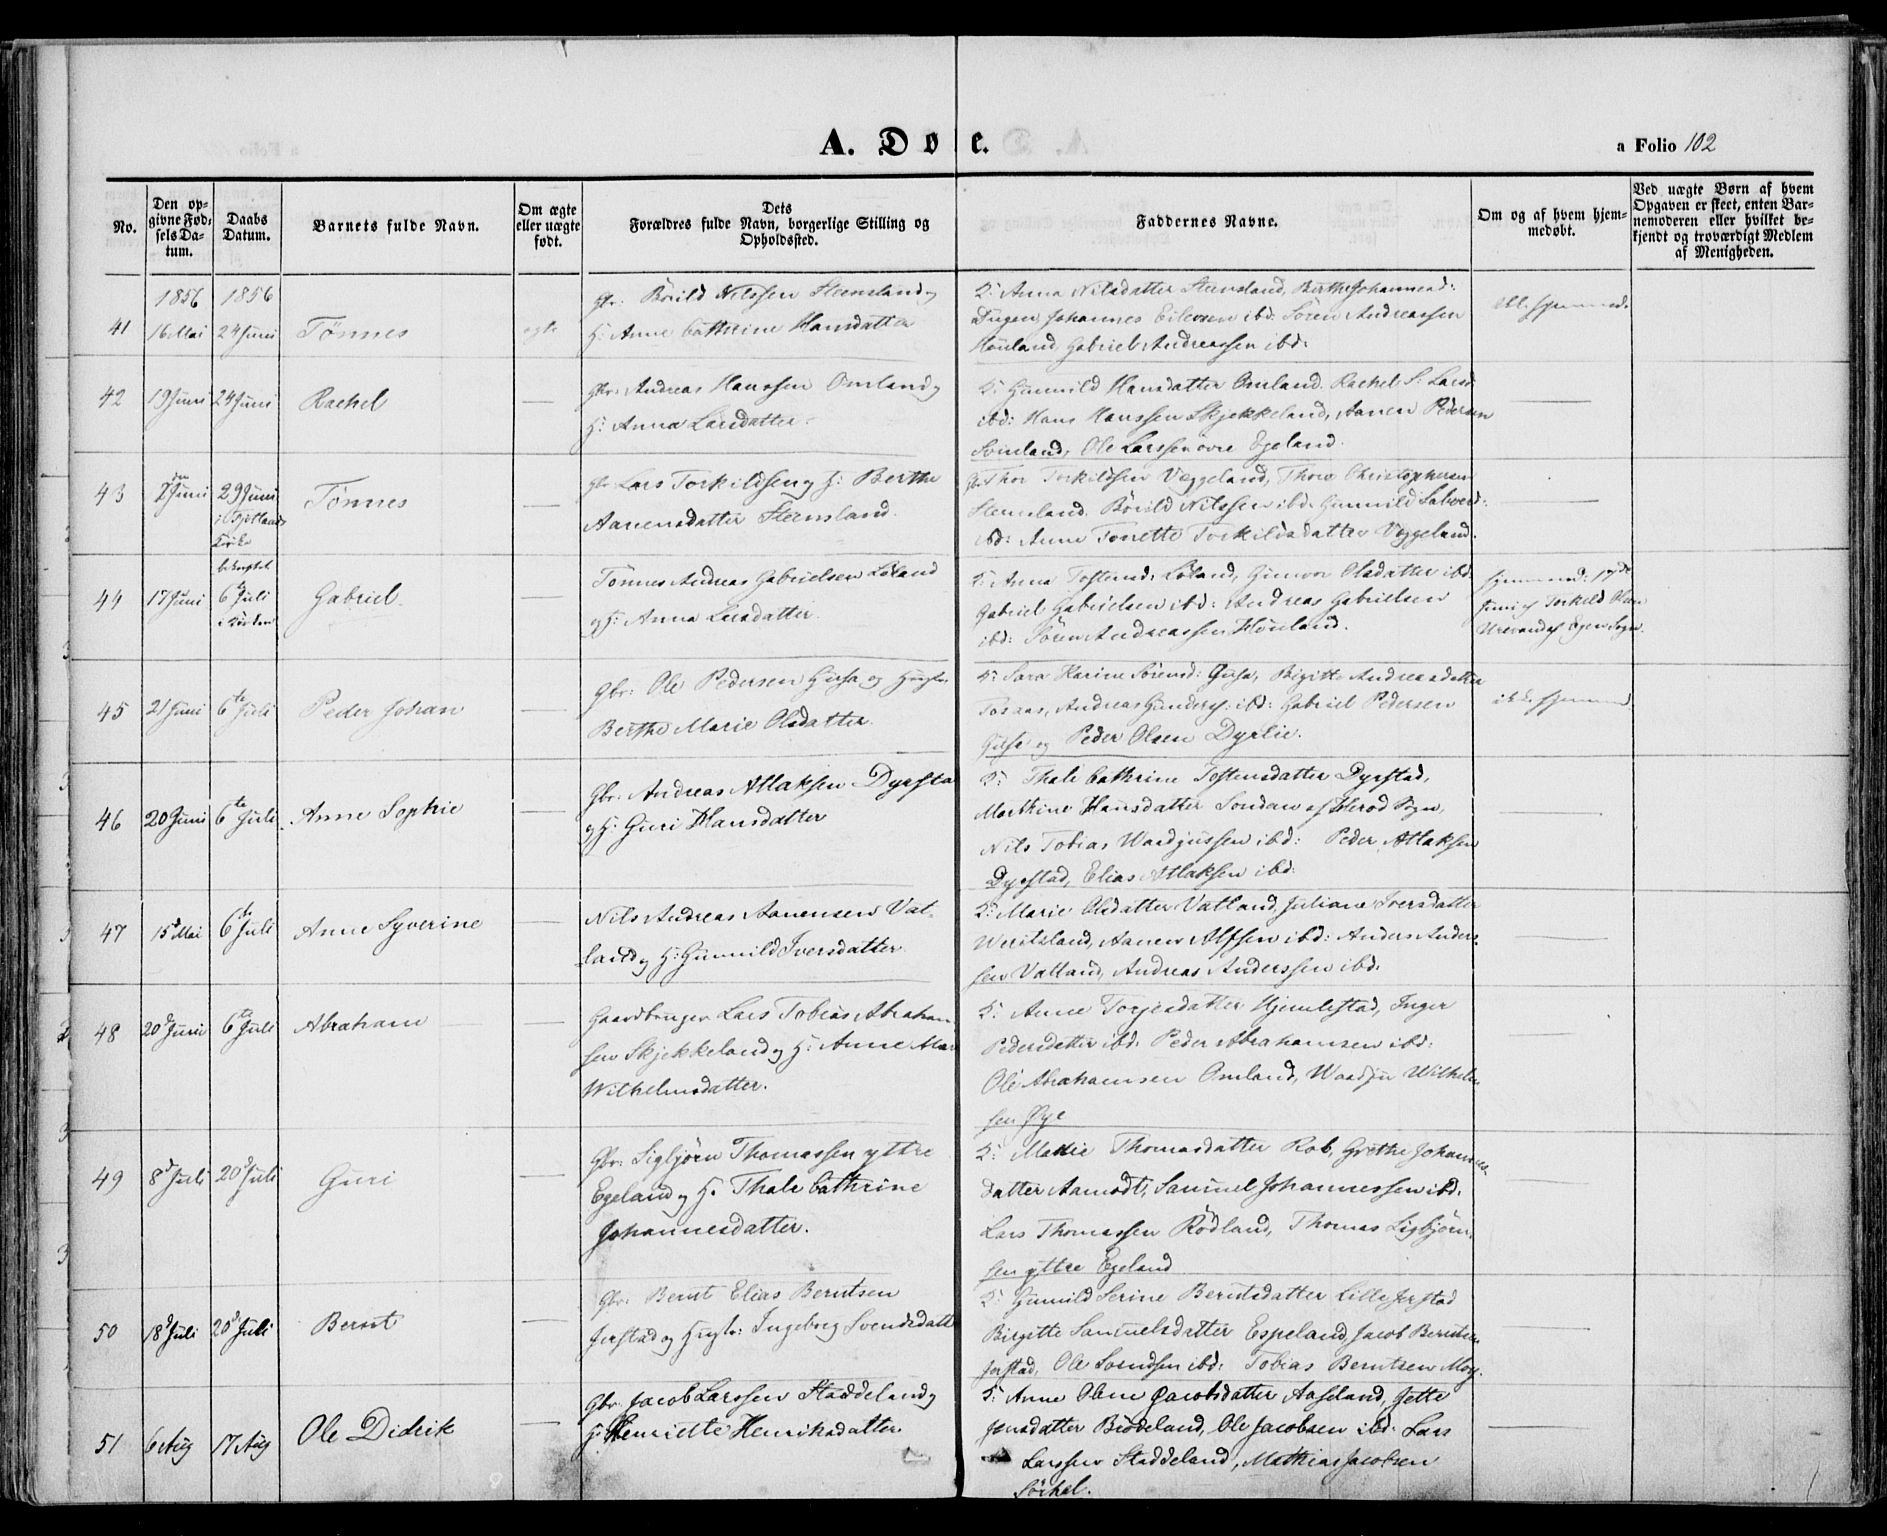 A. Døbte.
a Folio 102
No.
Den op-
givne Fød-
sels Da-
tum.
Daabs
Datum.
Barnets fulde Navn.
Om ægte
eller uægte
født.
Dets
Forældres fulde Navn, borgerlige Stilling og
Opholdssted.
Faddernes Navne.
Om og af hvem hjem-
medøbt.
Ved uægte Børn af hvem
Opgaven er skeet, enten Bar-
nemoderen eller hvilket be-
kjendt og troværdigt Medlem
af Menigheden.
1856 1856
41 16 Mai 24 Juni Tønnes ægte
Gbr: Børild Nilssen Steensland og
H: Anne Cathrine Hansdatter
K: Anna Nilsdatter Steensland, Berthe Johannesd:
Johannes Eilersen ibd: Søren Andreassen
Gabriel Andreassen ibd:
42 19 Juni 24 Juni Rachel —
Gbr: Andreas Hanssen Omland og
H: Anna Larsdatter
K: Gunnild Hansdatter Omland. Rachel S. Larsd:
ibd: Hans Hanssen Skjekkeland, Aanen Pedersen
Ole Larssen øvre Egeland.
43 Juni 29 Juni Tønnes —
Kirke
Gbr Lars Torkildsen og H: Berthe
Aanensdatter Steensland.
Gbr Thor Torkildsen Veggeland, Thore Christophersen
Steensland. Børild Nilssen ibd. Gunnild
ibd: Anne Tonette Torkildsdatter Veggeland.
44 17 Juni 6te Juli Gabriel —
Tønnes Andreas Gabrielsen Løland
og H: Anna Larsdatter.
K: Anna Tostensd: Løland, Gunvor Olsdatter ibd
Gabriel Gabrielsen ibd: Andreas Gabrielsen
ibd: Søren Andreassen
Hjemmed: 17de
Juni af Torkild Olsen
Sogn.
45 21 Juni 6te Juli Peder Johan —
Gbr: Ole Pedersen Gusa og Hustr.
Berthe Marie Olsdatter.
K: Sara Karine Sørensd: Gusa, Birgitte Andreasdatter
Andreas ibd: Gabriel Pedersen
Gusa og Peder Olsen Dyrlie.
ikke hjemmed
46 20 Juni 6te Juli Anne Sophie —
Gbr: Andreas Atlaksen Dyrstad
og H: Guri Hansdatter
K: Thale Cathrine Tostensdatter Dyrstad,
Marthine Hansdatter af Herod Sogn,
Nils Tobias Waardjussen ibd: Peder Atlaksen
Dyrstad, Elias Atlaksen ibd:
47 15d Mai 6te Juli Anne Syverine —
Nils Andreas Aanensen Vat-
land og H: Gunnild Iversdatter
K: Marie Olsdatter Vatland, Juliane Iversdatter
Aanen Alfsen ibd: Anders Anders-
sen Vatland, Andreas Anderssen ibd.
48 20d Juni 6te Juli Abraham —
Gaardbruger Lars Tobias Abraham-
sen Skjekkeland og H: Anne Mar
Wilhelmsdatter.
K: Anne Torjesdatter Hjemlestad, Inger
Pedersdatter ibd: Peder Abrahamsen ibd:
Ole Abrahamsen Omland, Waardju Wilhelm-
sen Øye
49 8d Juli 20d Juli Guri —
Gbr: Sigbjørn Thomassen yttre
Egeland og H. Thale Cathrine
Johannesdatter.
K: Thomasdatter Rob, Grethe Johannes-
datter Aamodt, Samuel Johannessen ibd.
Lars Thomassen Rødland, Thomas Sigbjørn-
sen yttre Egeland
50 18d Juli 20d Juli Bernt —
Gbr: Bernt Elias Berntsen
Jerstad og Hustr: Ingeborg Svendsdatt
K: Gunnild Serine Berntsdatter Lille Jerstad
Birgitte Samuelsdatter Espeland, Jacob Berntsen
Jerstad, Ole Svendsen ibd: Tobias Berntsen Moy.
51 6 Aug 17 Aug Ole Didrik —
Gbr. Jacob Larssen Staddeland og
H: Henriette Henriksdatter
K: Anne Oline Jacobsdatter Aaseland, Jette
Jensdatter Ole Jacobsen ibd. Lars
Larssen Staddeland, Mathias Jacobsen